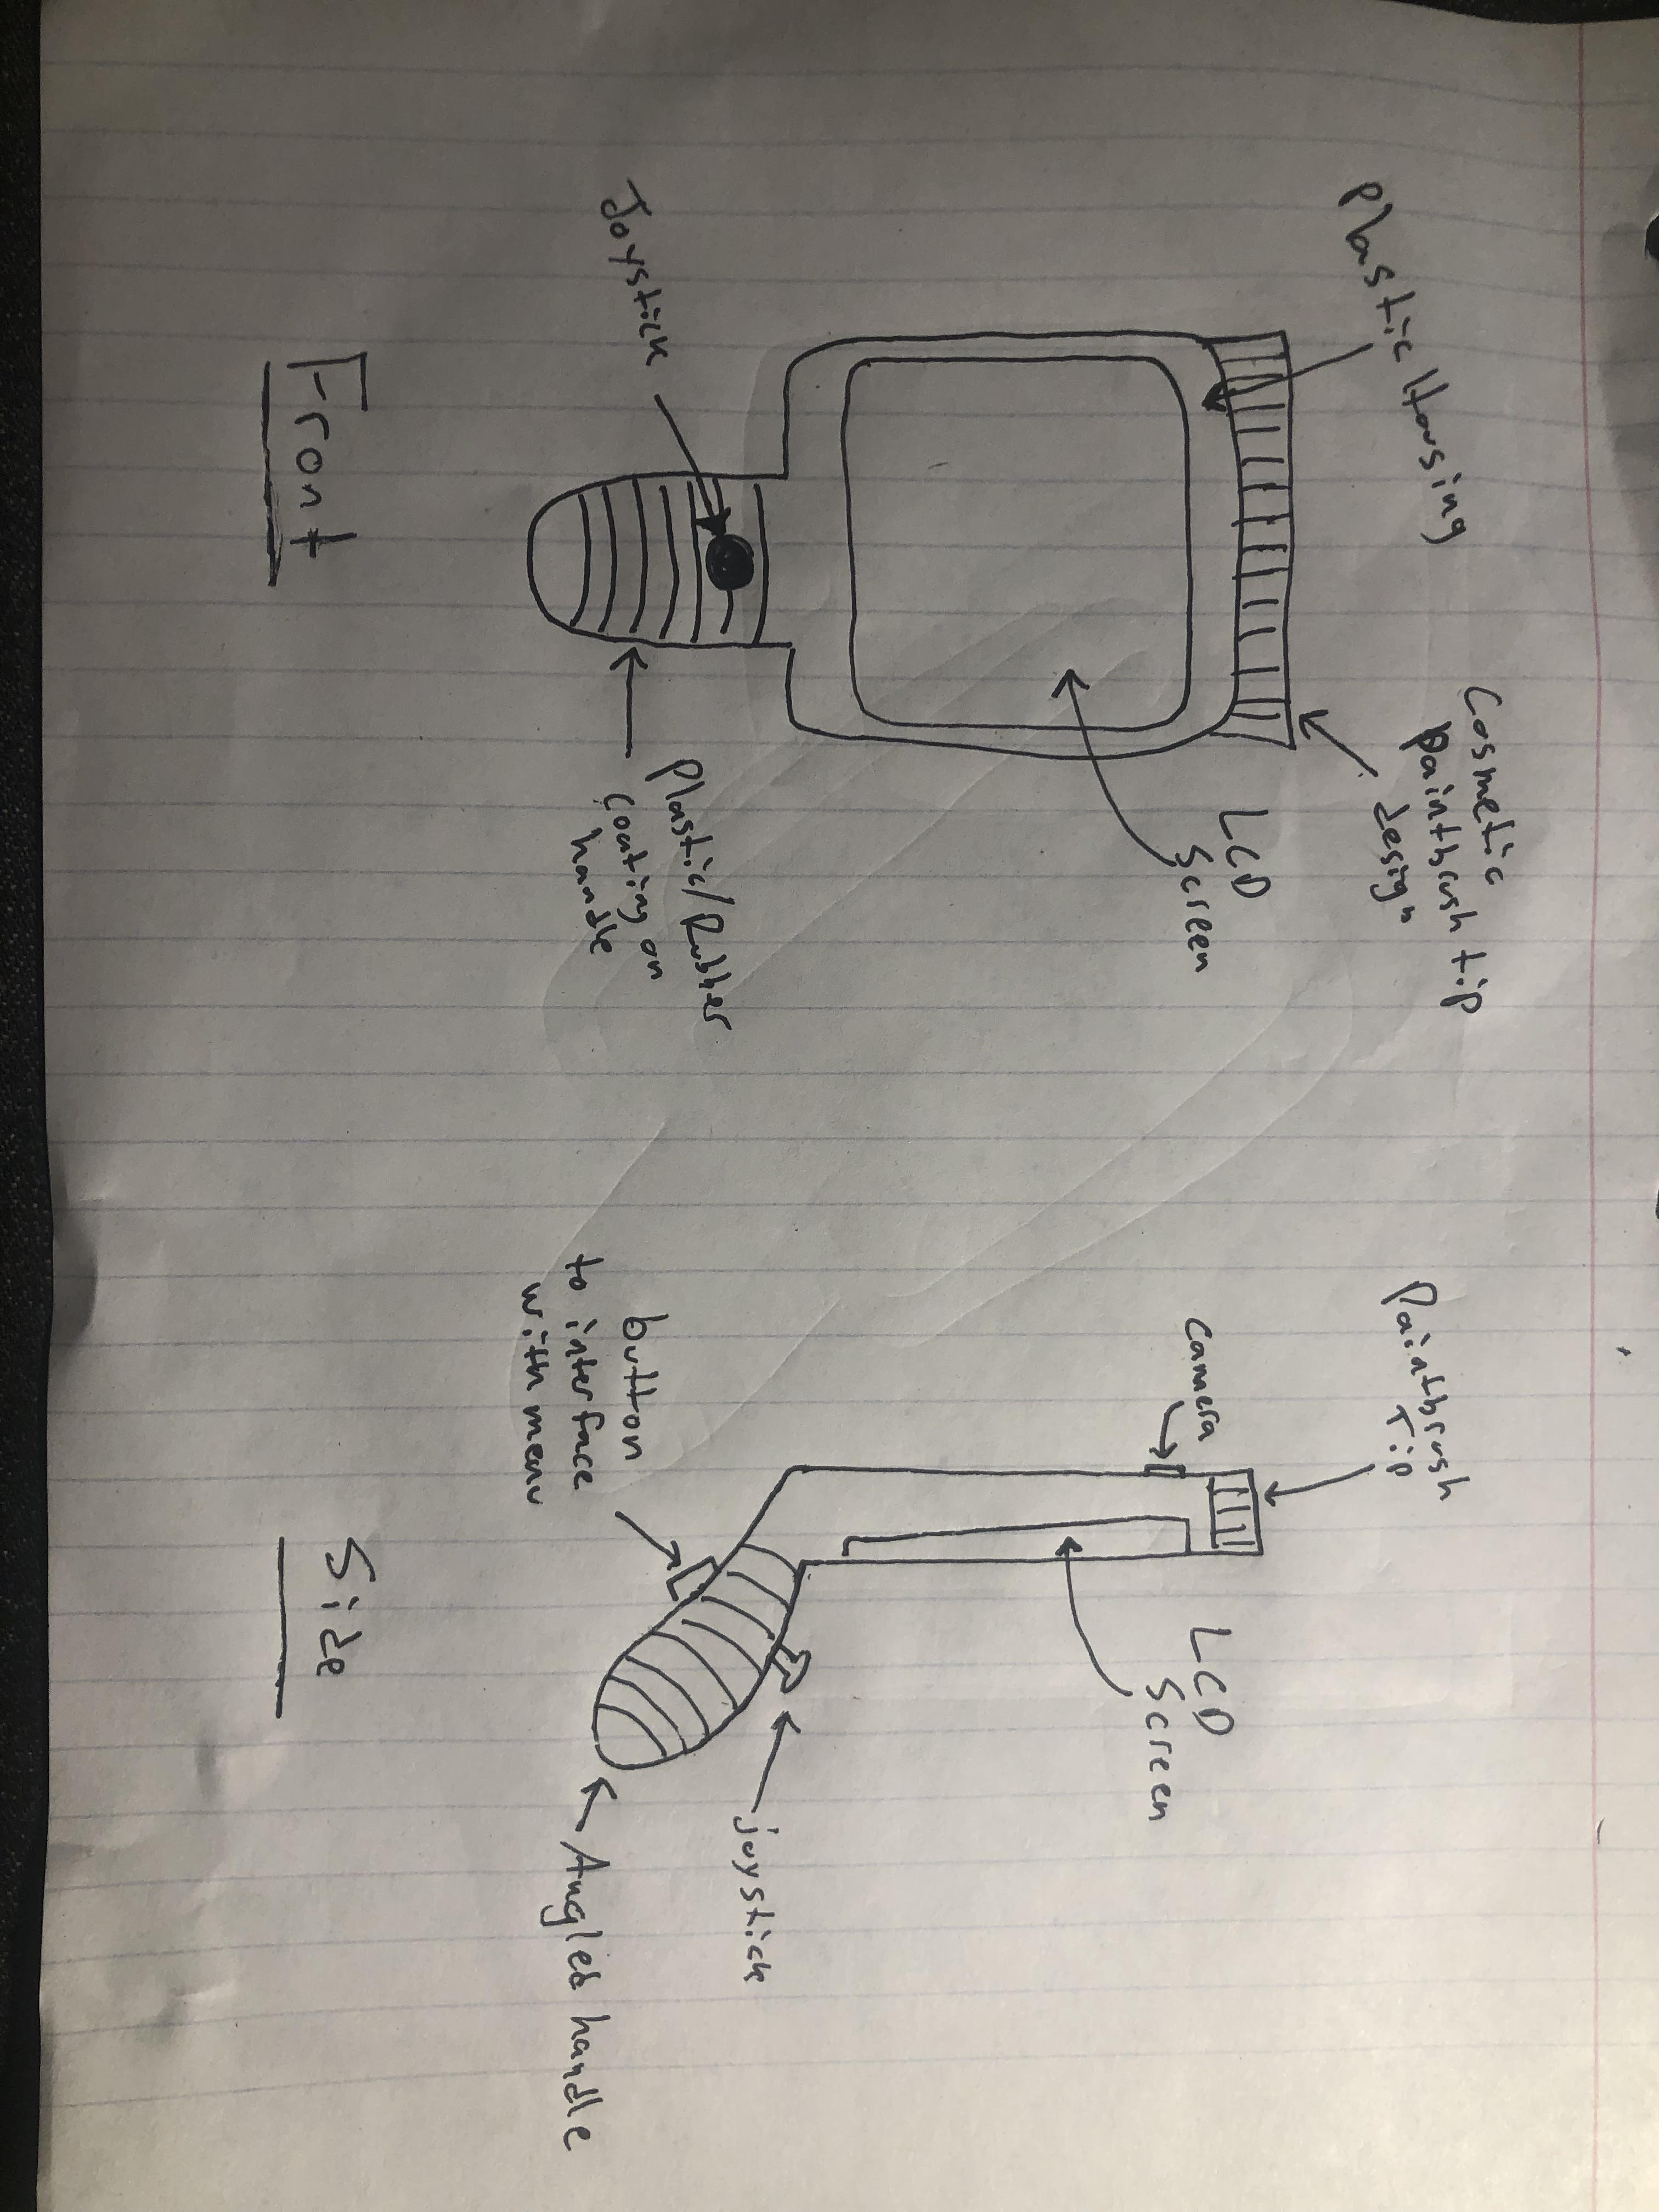 Plastic Housing
Cosmetic
paintbrush tip
design
LCD
Screen
Joystick
Plastic/Rubber
coating on
handle
Front
Paintbrush
Tip
camera
LCD
Screen
joystick
button
to interface
with menu
Angled handle
Side